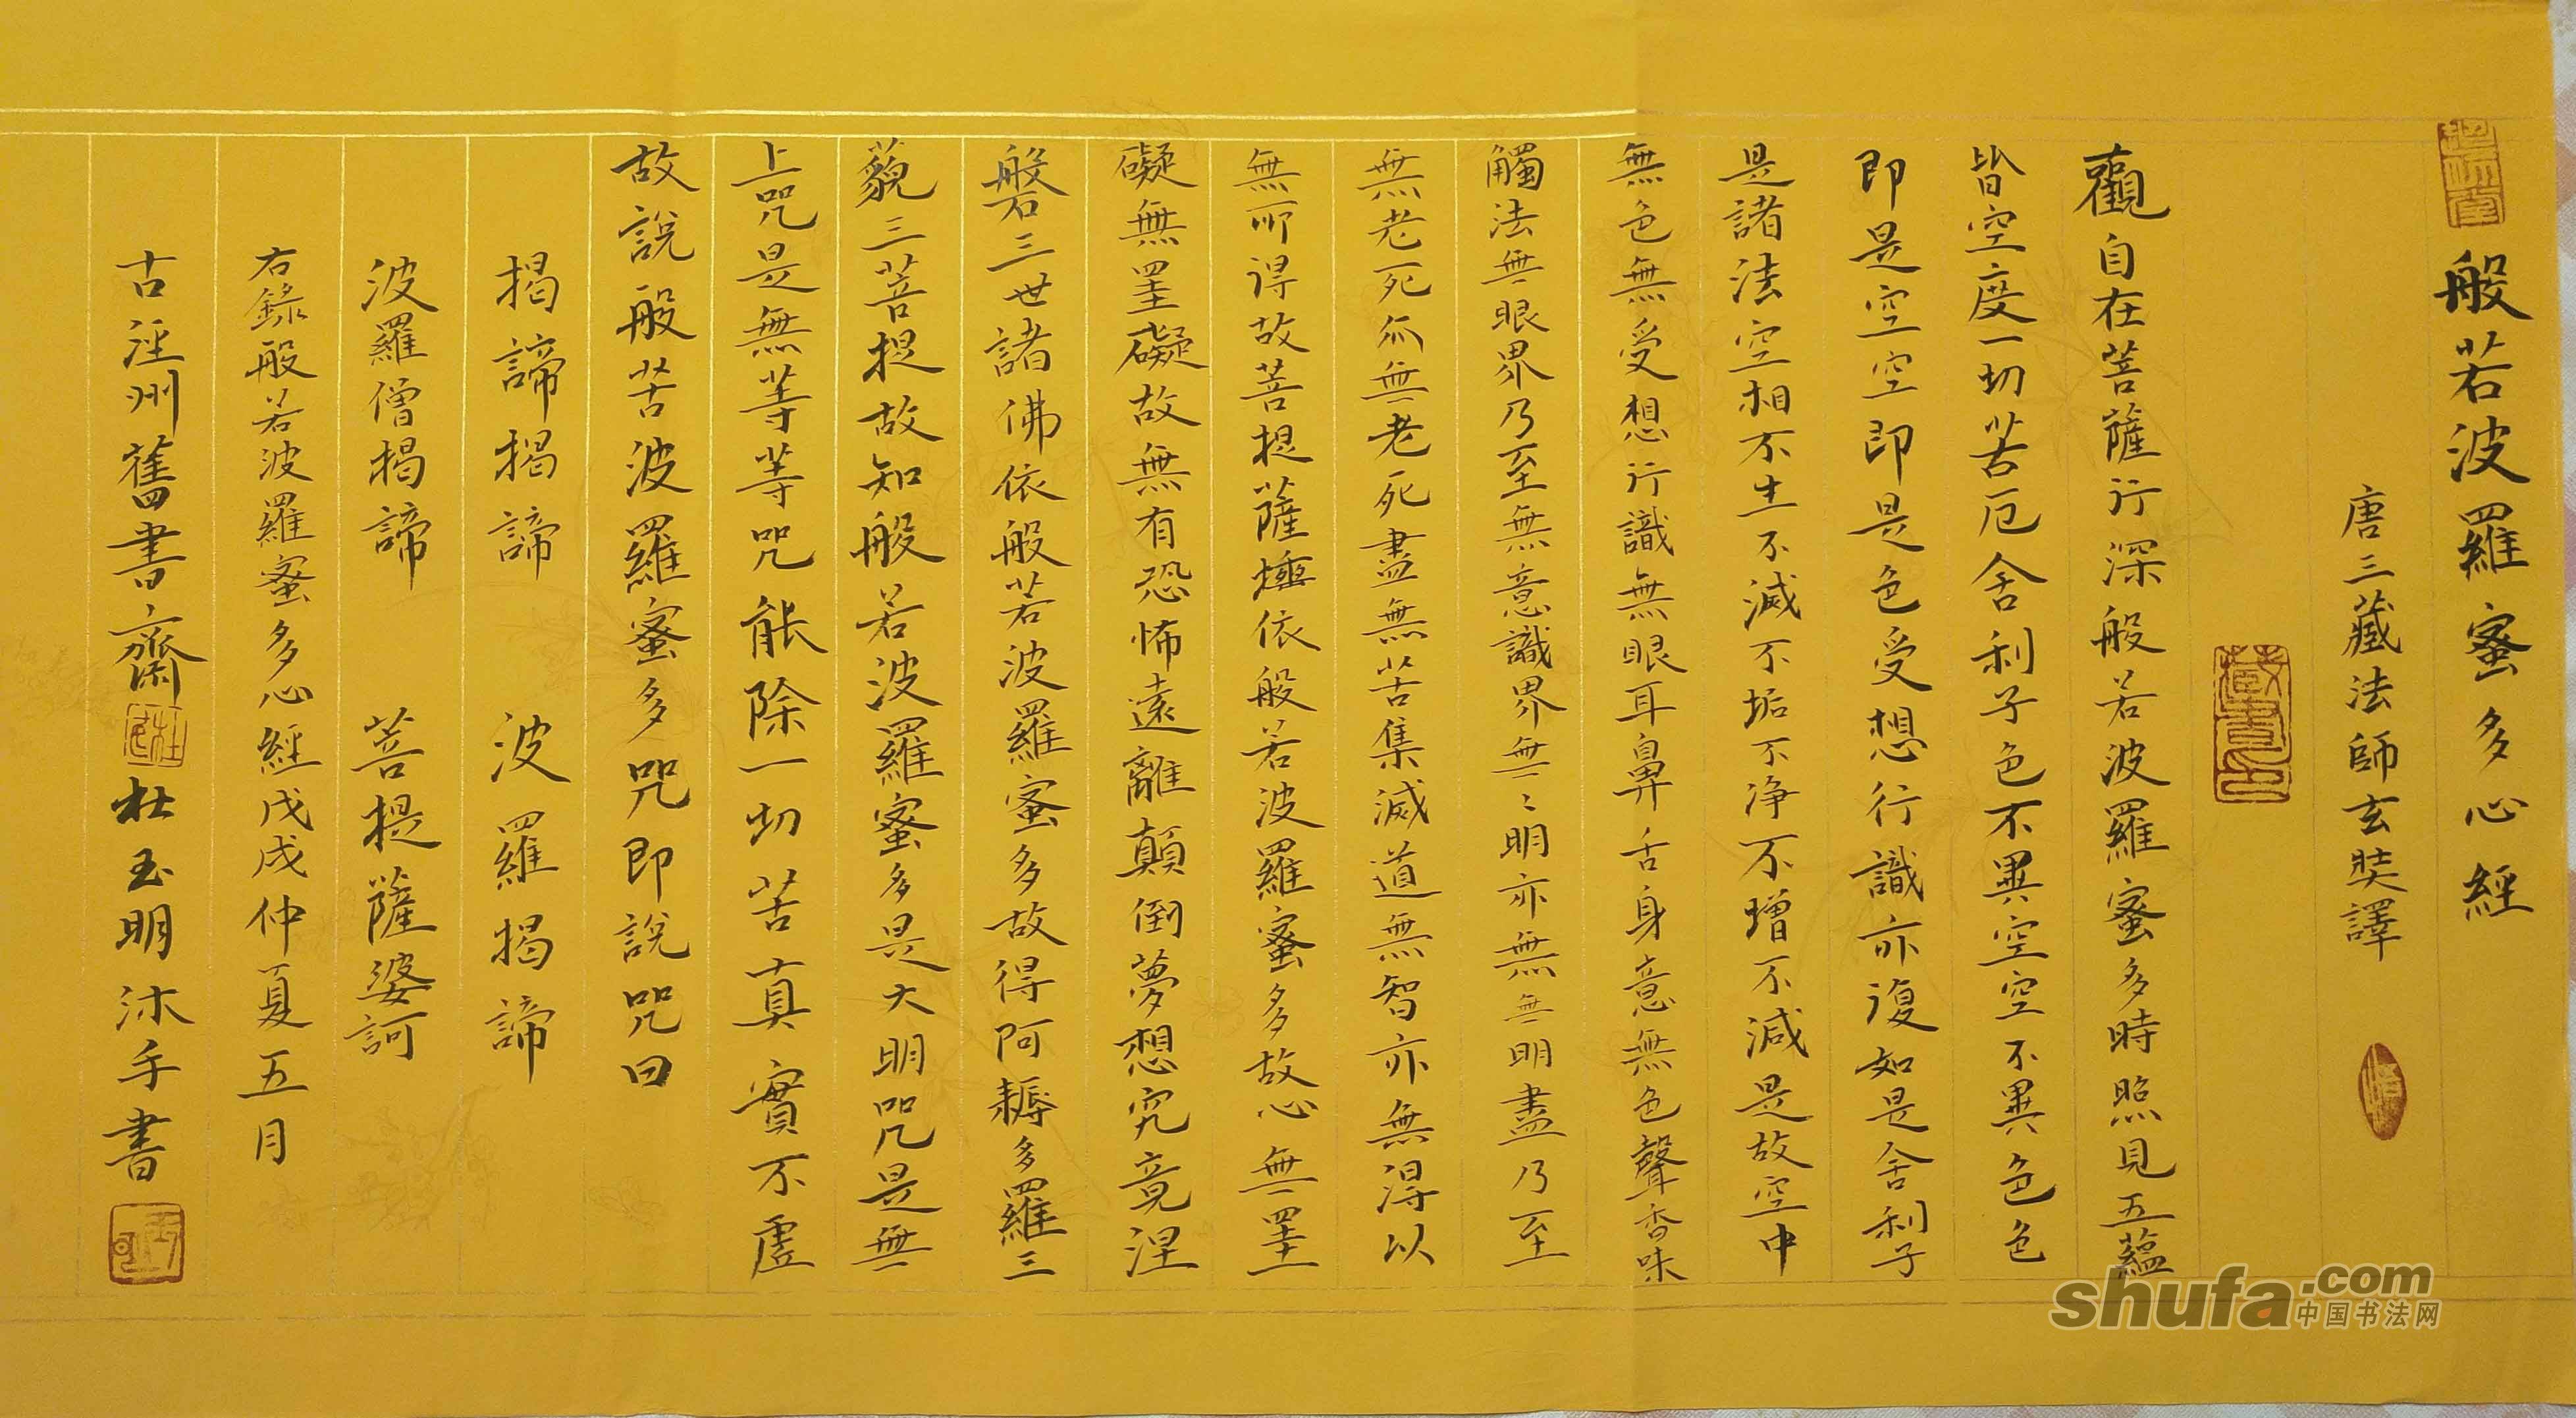 般若波羅蜜多心經
唐三藏法師玄奘譯
藏書之印
觀自在菩薩行深般若波羅蜜多時照見五蘊
皆空度一切苦厄舍利子色不異空空不異色色
即是空空即是色受想行識亦復如是舍利子
是諸法空相不生不滅不垢不净不增不減是故空中
無色無受想行識無眼耳鼻舌身意無色聲香味
觸法無眼界乃至無意識界無〻明亦無無明盡乃至
無老死亦無老死盡無苦集滅道無智亦無得以
無所得故菩提薩埵依般若波羅蜜多故心無罣
礙無罣礙故無有恐怖遠離顛倒夢想究竟涅
磐三世諸佛依般若波羅蜜多故得阿耨多羅三
藐三菩提故知般若波羅蜜多是大明咒是無
上咒是無等等咒能除一切苦真實不虛
故說般苦波羅蜜多咒即說咒曰
揭諦揭諦 波羅揭諦
波羅僧揭諦 菩提薩婆訶
右錄般若波羅蜜多心經戊戌仲夏五月
古涇州舊書齋 杜玉明沐手書
shufa.com
中国书法网